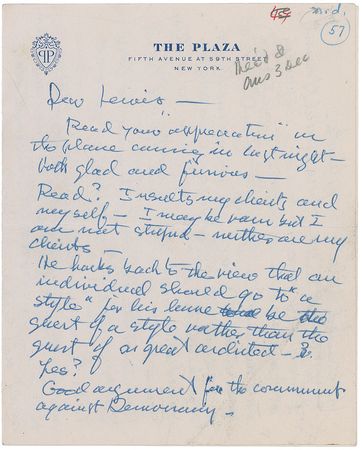 mid.
57
THE PLAZA
FIFTH AVENUE AT 59TH STREET
NEW YORK
Rec'd 8
ans 3 Dec
Dear Lewis —
Read your "appreciation" in
the plane coming in last night —
both glad and furious —
Read? Insults my clients and
myself — I may be vain but I
am not stupid — neither are my
clients —
He harks back to the view that an
individual should go to "a
style" for his home be the
guest of a style rather than the
guest of a great architect — ?
Yes?
Good argument for the communist
against Democracy —